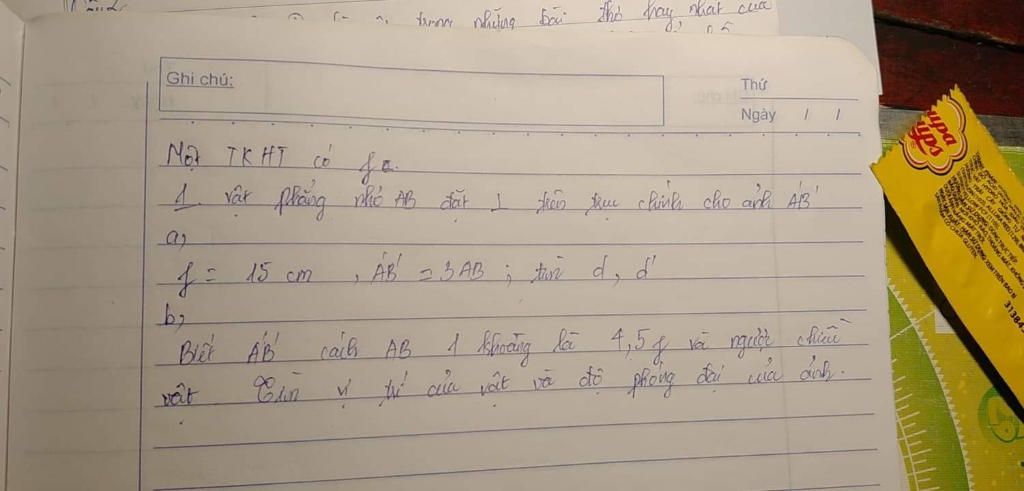 trong những bài thơ hay nhất của
Ghi chú:
Thứ
Ngày / /
Một TKHT có f
1 vật phẳng nhỏ AB đặt ⊥ trên trục chính cho ảnh A'B'
a,
f = 15 cm , A'B' = 3AB ; tìm d, d'
b,
Biết A'B' cách AB 1 khoảng là 4,5f và ngược chiều
vật Tìm vị trí của vật và độ phóng đại của ảnh.
31384